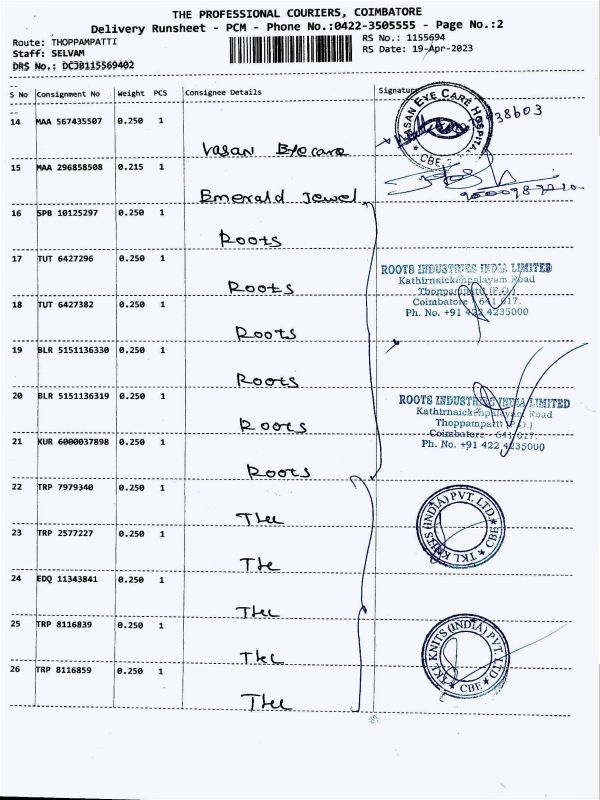 THE PROFESSIONAL COURIERS, COIMBATORE
Delivery Runsheet - PCM - Phone No.:0422-3505555 - Page No.:2
Route: THOPPAMPATTI
RS No.: 1155694
Staff: SELVAM
RS Date: 19-Apr-2023
DRS No.: DCJB115569402
S No Consignment No Weight PCS Consignee Details Signature
14 MAA 567435507 0.250 1
Vasan Eyecare
VASAN EYE CARE HOSPITAL
CBE
15 MAA 296858508 0.215 1
Emerald Jewel
16 SPB 10125297 0.250 1
Roots
17 TUT 6427296 0.250 1
Roots
ROOTS INDUSTRIES INDIA LIMITED
Kathirnaickenpalayam Road
Thoppampatti (P.O.)
Coimbatore - 641 017.
Ph. No. +91 422 4235000
18 TUT 6427382 0.250 1
Roots
19 BLR 5151136330 0.250 1
Roots
20 BLR 5151136319 0.250 1
Roots
ROOTS INDUSTRIES INDIA LIMITED
Kathirnaickenpalayam Road
Thoppampatti (P.O.)
Coimbatore - 641 017.
Ph. No. +91 422 4235000
21 KUR 6000037898 0.250 1
Roots
22 TRP 7979340 0.250 1
TKL KNITS (INDIA) PVT. LTD.
CBE
23 TRP 2577227 0.250 1
24 EDQ 11343841 0.250 1
25 TRP 8116839 0.250 1
TKL KNITS (INDIA) PVT. LTD
CBE
26 TRP 8116859 0.250 1